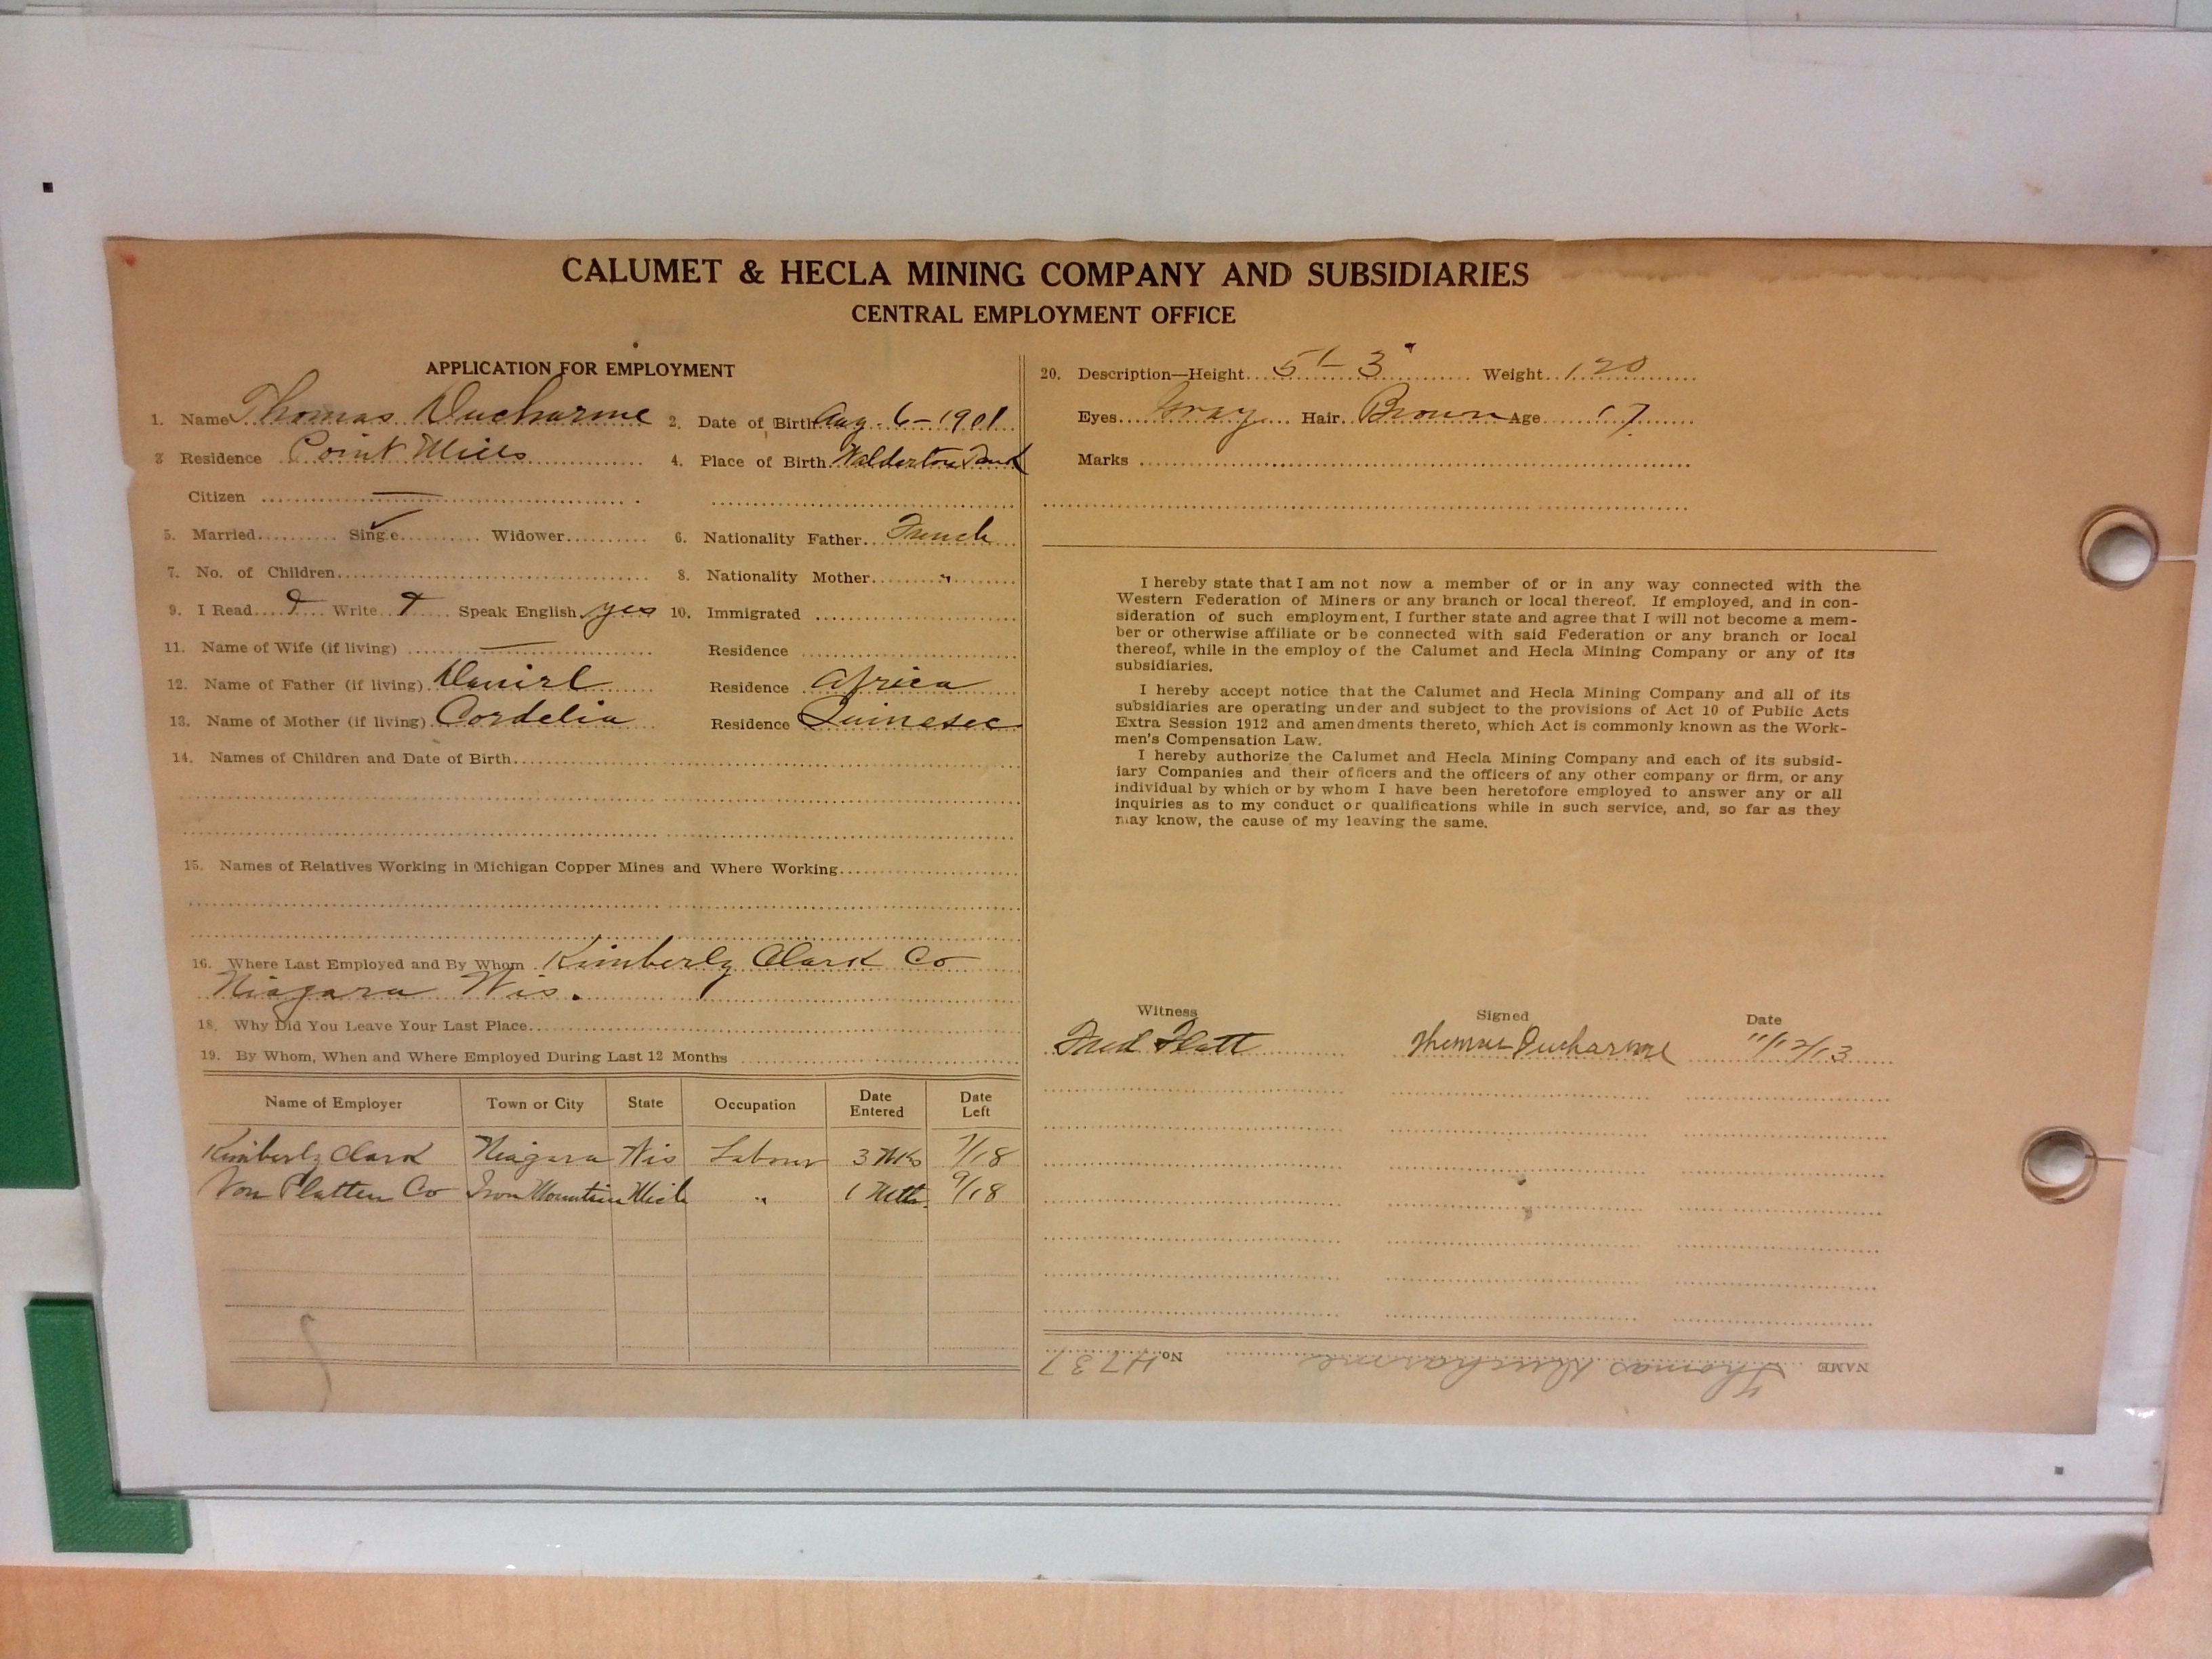 CALUMET & HECLA MINING COMPANY AND SUBSIDIARIES
CENTRAL EMPLOYMENT OFFICE
APPLICATION FOR EMPLOYMENT
1. Name Thomas Ducharme 2. Date of Birth Aug. 6-1901
3 Residence Point Mills 4. Place of Birth
Citizen —
5. Married Single ✓ Widower 6. Nationality Father French
7. No. of Children 8. Nationality Mother "
9. I Read Write Speak English yes 10. Immigrated
11. Name of Wife (if living) — Residence
12. Name of Father (if living) Daniel Residence Africa
13. Name of Mother (if living) Cordelia Residence Quinesec
14. Names of Children and Date of Birth
15. Names of Relatives Working in Michigan Copper Mines and Where Working
16. Where Last Employed and By Whom Kimberly Clark Co
Niagara Wis.
18. Why Did You Leave Your Last Place
19. By Whom, When and Where Employed During Last 12 Months
Name of Employer Town or City State Occupation Date Entered Date Left
Kimberly Clark Niagara Wis Labour 3 7/18
Von Platten Co Iron Mountain Mich " 1 Mth. 9/18
20. Description—Height 5'-3" Weight 120
Eyes Gray Hair Brown Age 17
Marks
I hereby state that I am not now a member of or in any way connected with the
Western Federation of Miners or any branch or local thereof. If employed, and in con-
sideration of such employment, I further state and agree that I will not become a mem-
ber or otherwise affiliate or be connected with said Federation or any branch or local
thereof, while in the employ of the Calumet and Hecla Mining Company or any of its
subsidiaries.
I hereby accept notice that the Calumet and Hecla Mining Company and all of its
subsidiaries are operating under and subject to the provisions of Act 10 of Public Acts
Extra Session 1912 and amendments thereto, which Act is commonly known as the Work-
men's Compensation Law.
I hereby authorize the Calumet and Hecla Mining Company and each of its subsid-
iary Companies and their officers and the officers of any other company or firm, or any
individual by which or by whom I have been heretofore employed to answer any or all
inquiries as to my conduct or qualifications while in such service, and, so far as they
may know, the cause of my leaving the same.
Witness Signed Date
Fred Flatt Thomas Ducharme 11/12/13
NAME Thomas Ducharme No. 4737